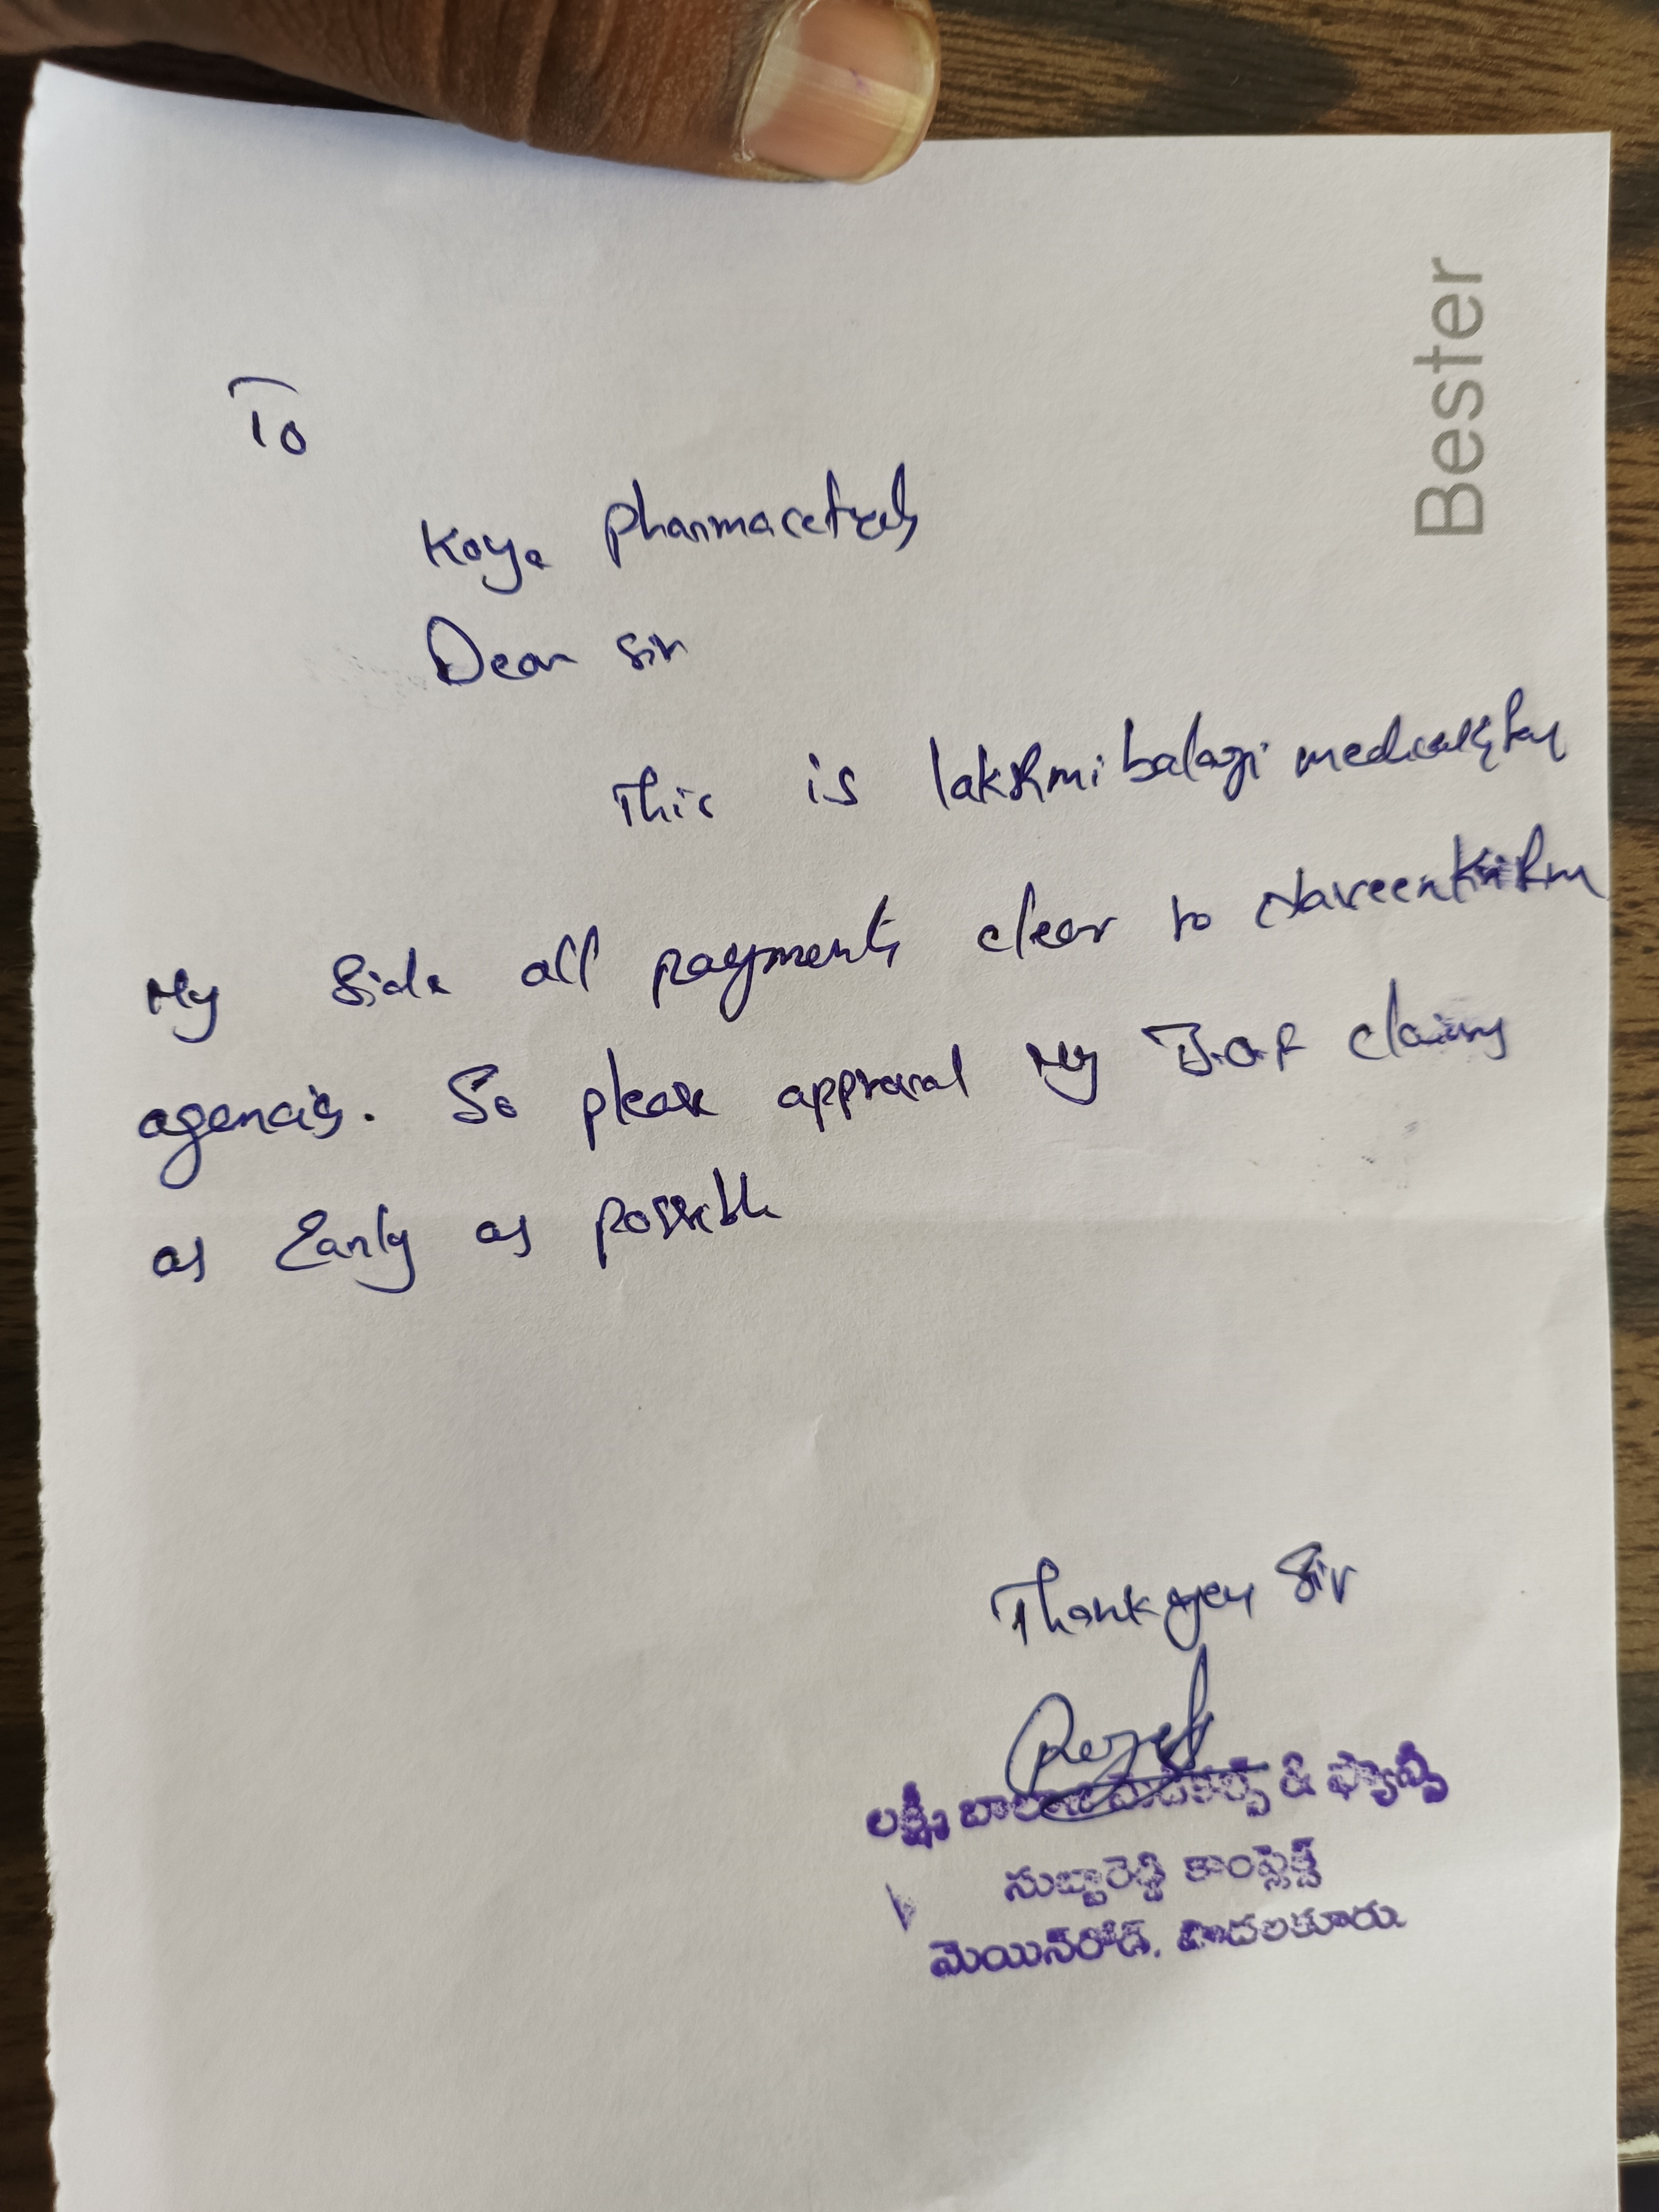 To
Koya pharmacetuals
Dear sir
This is lakshmi balagi medicals
My Side all payments clear to Naveenkrishn
agencis. So please approval My claims
as Early as possible
Thank you Sir
లక్ష్మీ బాలాజీ మెడికల్స్ & ఫ్యాన్సీ
సుబ్బారెడ్డి కాంప్లెక్స్
మెయిన్‌రోడ్, పొదలకూరు.
Bester